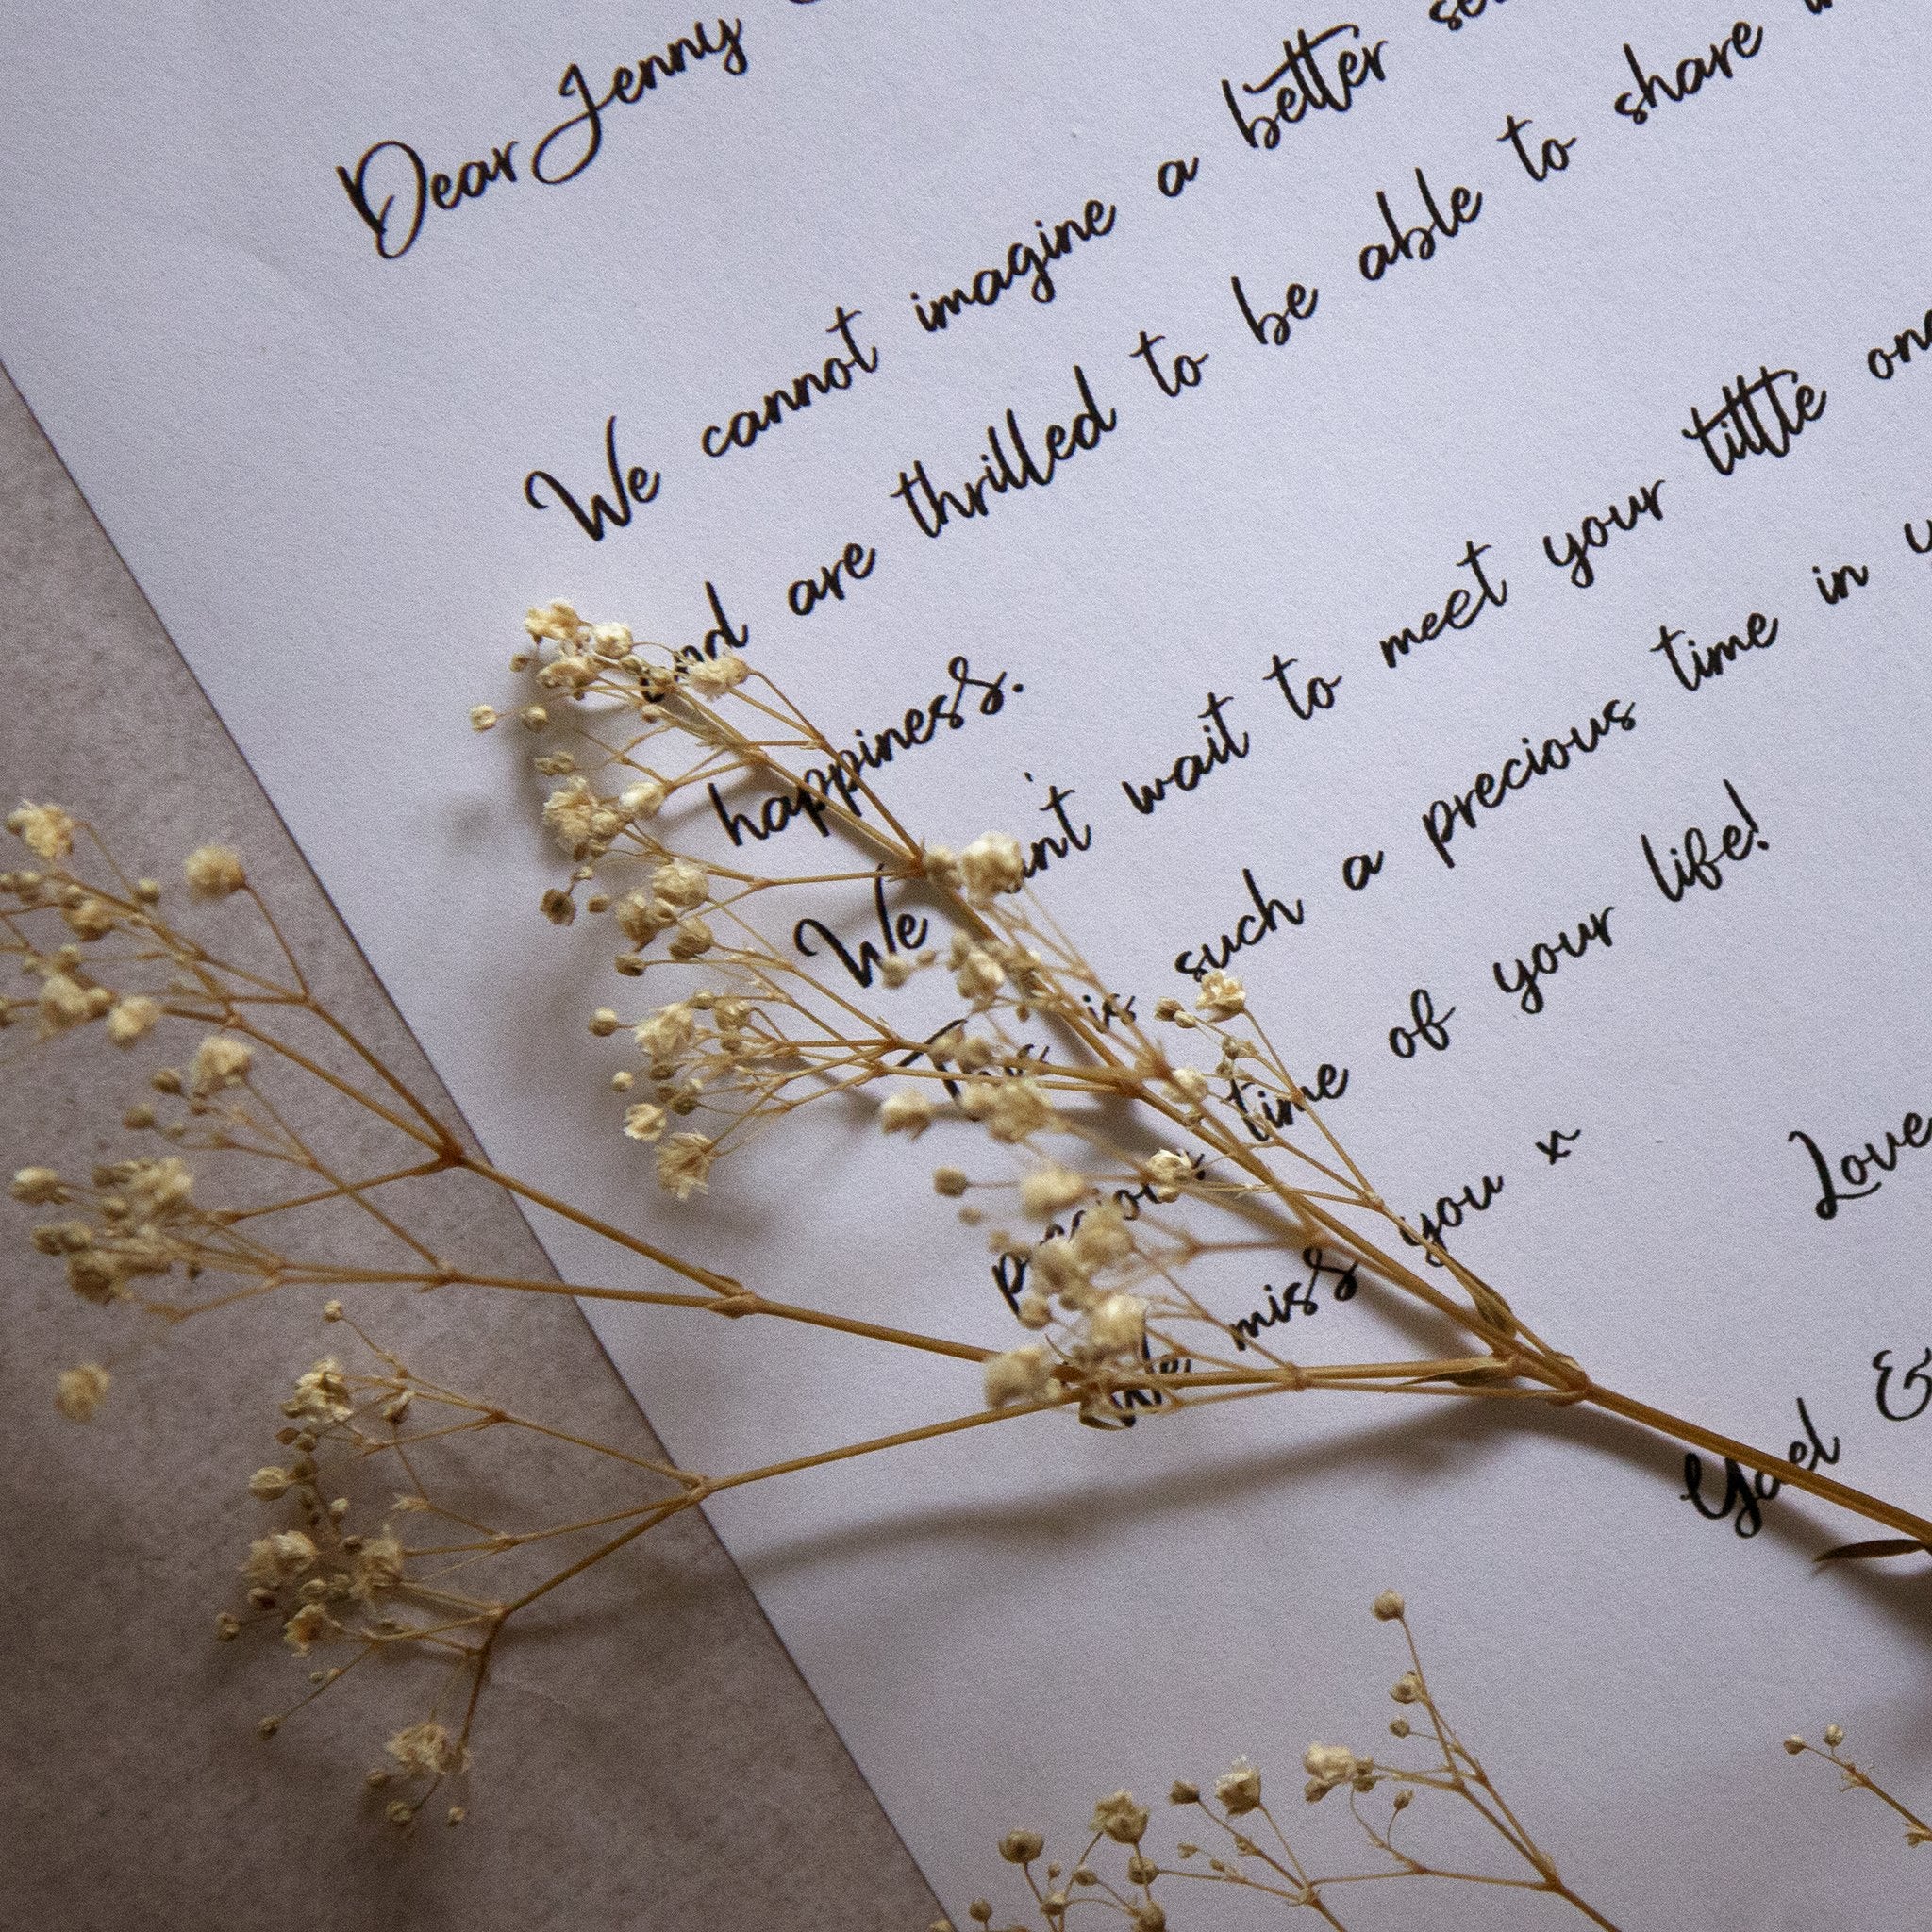 Dear Jenny
We cannot imagine a better
and are thrilled to be able to share
happiness.
We can't wait to meet your little
This is such a precious time in
precious time of your life!
We miss you x
Love
Yael &